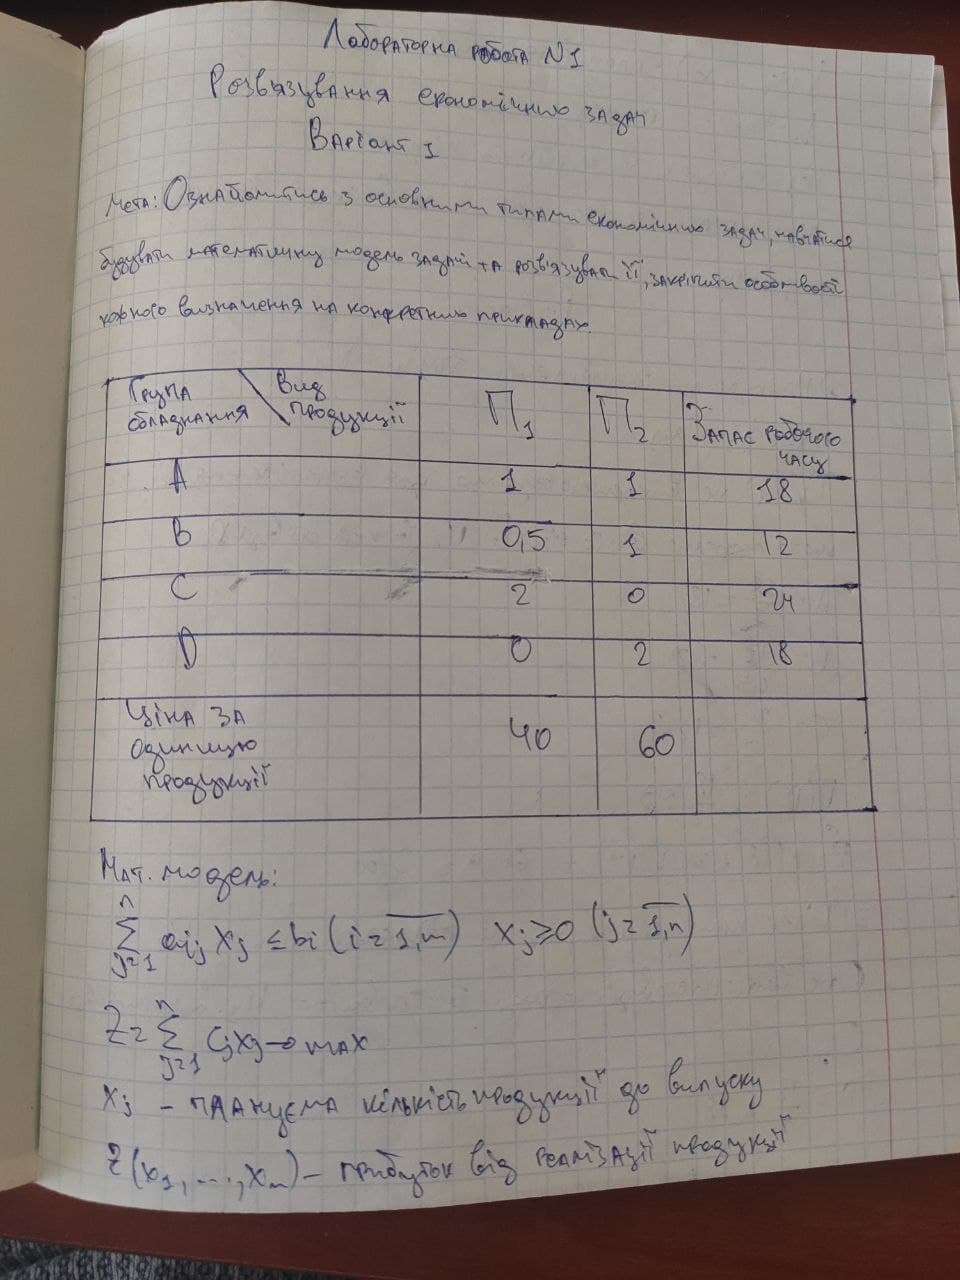 Лабораторна робота N1
Розв'язування економічних задач
Варіант 1
Мета: Ознайомитись з основними типами економічних задач, навчатися
будувати математичну модель задачі та розв'язувати її, закріпити особливості
кожного визначення на конкретних прикладах.
Група обладнання \ Вид продукції П1 П2 Запас робочого часу
A 1 1 18
B 0,5 1 12
C 2 0 24
D 0 2 18
Ціна за одиницю продукції 40 60
Мат. модель:
∑ⁿj=1 aij xj ≤ bi (i = 1,m) xj ≥ 0 (j = 1,n)
Z = ∑ⁿj=1 cj xj → max
xj – плануєма кількість продукції до випуску
Z(x1, ..., xn) – прибуток від реалізації продукції